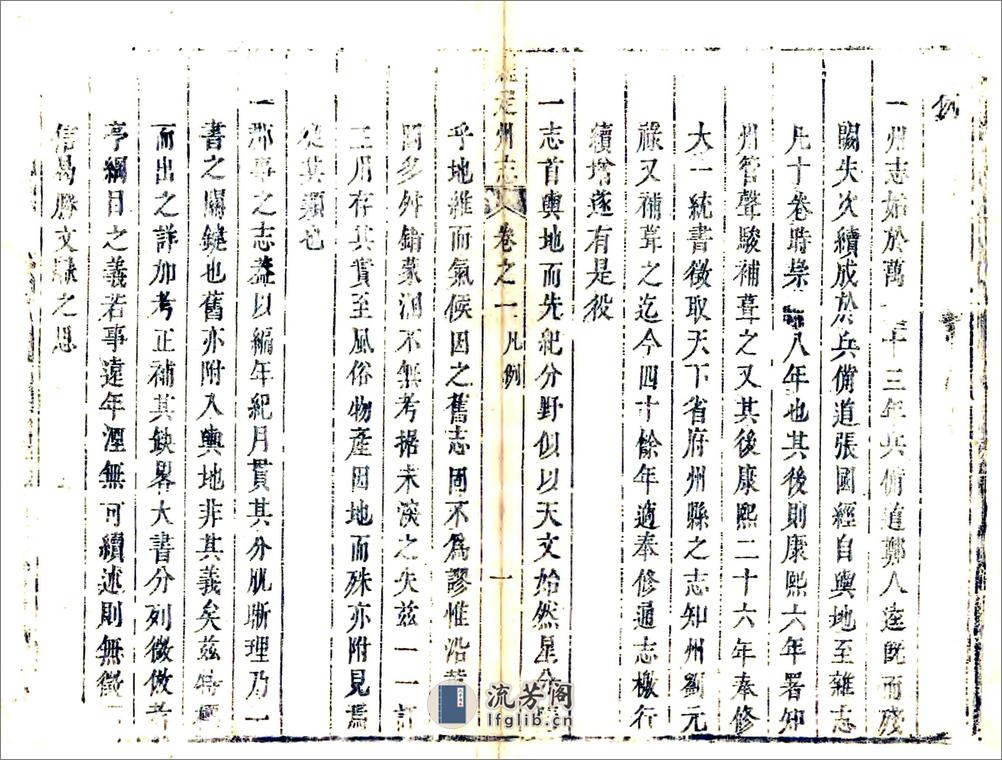 一州志始於萬 年十三年兵備道鄭人逵旣而殘
闕失次續成於兵備道張國經自輿地至雜志
凡十卷時崇 八年也其後則康熙六年署知
州管聲駿補葺之又其後康熙二十六年奉修
大一統書徵取天下省府州縣之志知州劉元
祿又補葺之迄今四十餘年適奉修通志檄行
續增遂有是役
一志首輿地而先紀分野似以天文始然星分
乎地維而氣候因之舊志固不爲謬惟沿
多舛錯蒙混不無考據未淡之失兹一一訂
正用存其實至風俗物產因地而殊亦附見焉
從其類也
州志 卷之一 凡例 一
一郡事之志葢以編年紀月貫其分肌晰理乃一
書之關鍵也舊亦附入輿地非其義矣兹特
而出之詳加考正補其缺畧大書分列徵倣
亭綱目之義若事遠年湮無可續述則無徵
信曷勝文獻之思
流芳阁
lfglib.cn